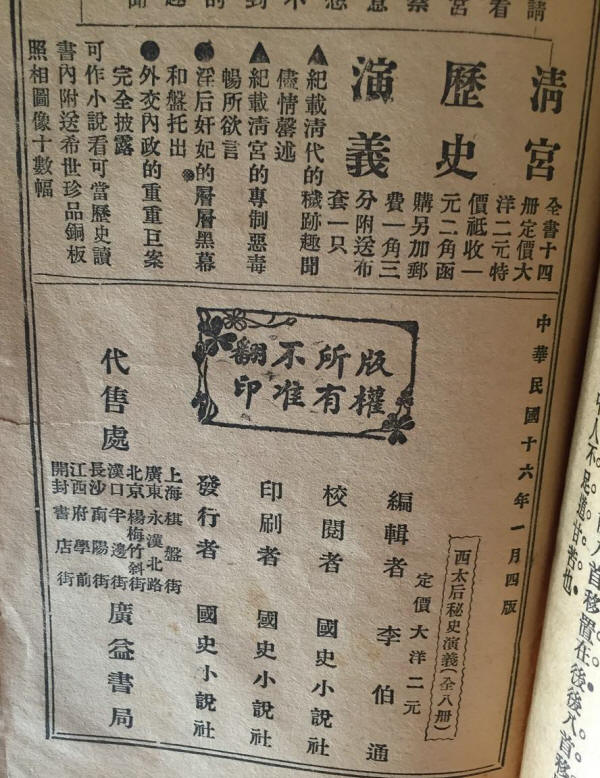 清宮
歷史
演義
全書十四
冊定價大
洋二元特
價祇收一
元二角函
購另加郵
費一角三
分附送布
套一只
▲紀載清代的穢跡趣聞
儘情罄述
▲紀載清宮的專制惡毒
暢所欲言
●淫后奸妃的層層黑幕
和盤托出
●外交內政的重重巨案
完全披露
可作小說看可當歷史讀
書內附送希世珍品銅板
照相圖像十數幅
中華民國十六年一月四版
版權
所有
不准
翻印
西太后秘史演義(全八冊)
定價大洋二元
編輯者 李伯通
校閱者 國史小說社
印刷者 國史小說社
發行者 國史小說社
代售處 廣益書局
上海棋盤街
廣東永漢北路
北京楊梅竹斜街
漢口半邊街
長沙南陽街
江西府學前
開封書店街
人不足道。甘苦也。
首移置在後後入首移